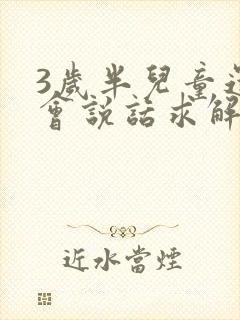 3歲半兒童還
會說話求解
近水當煙